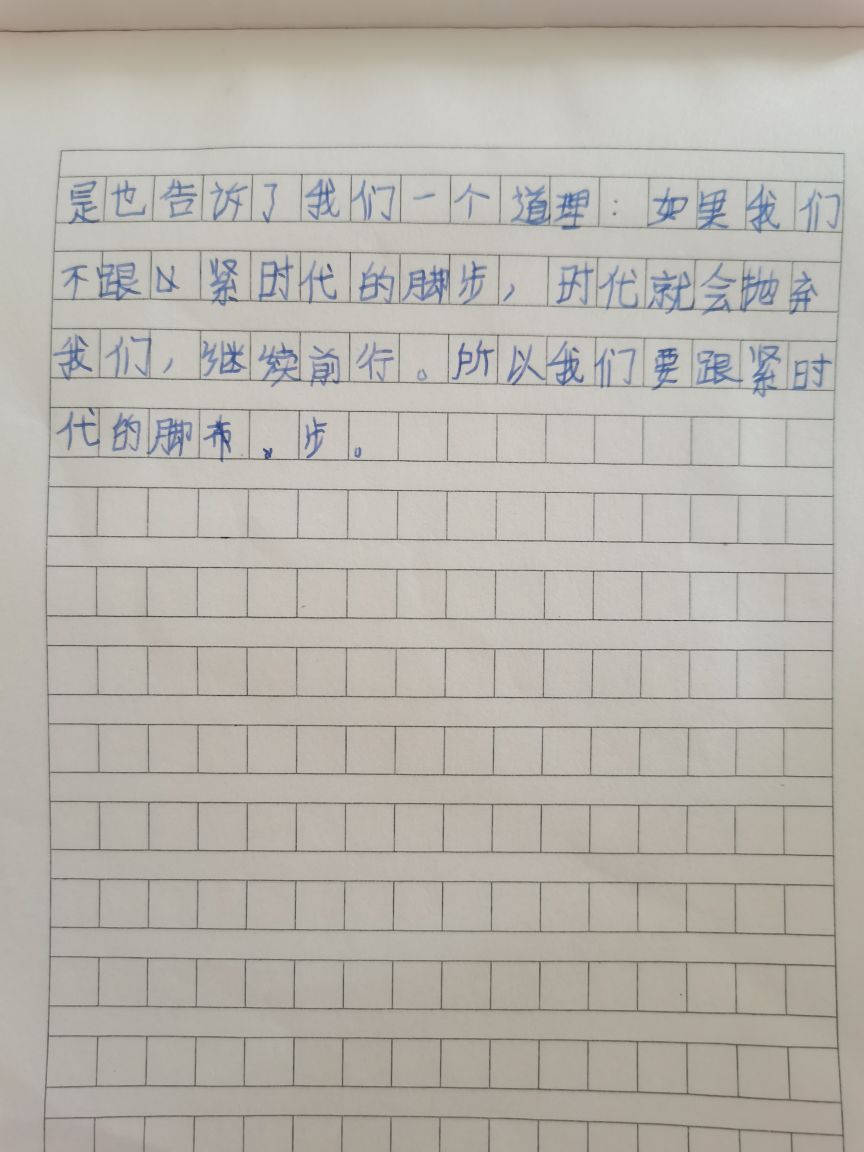 是也告诉了我们一个道理：如果我们
不跟紧时代的脚步，时代就会抛弃
我们，继续前行。所以我们要跟紧时
代的脚布。步。